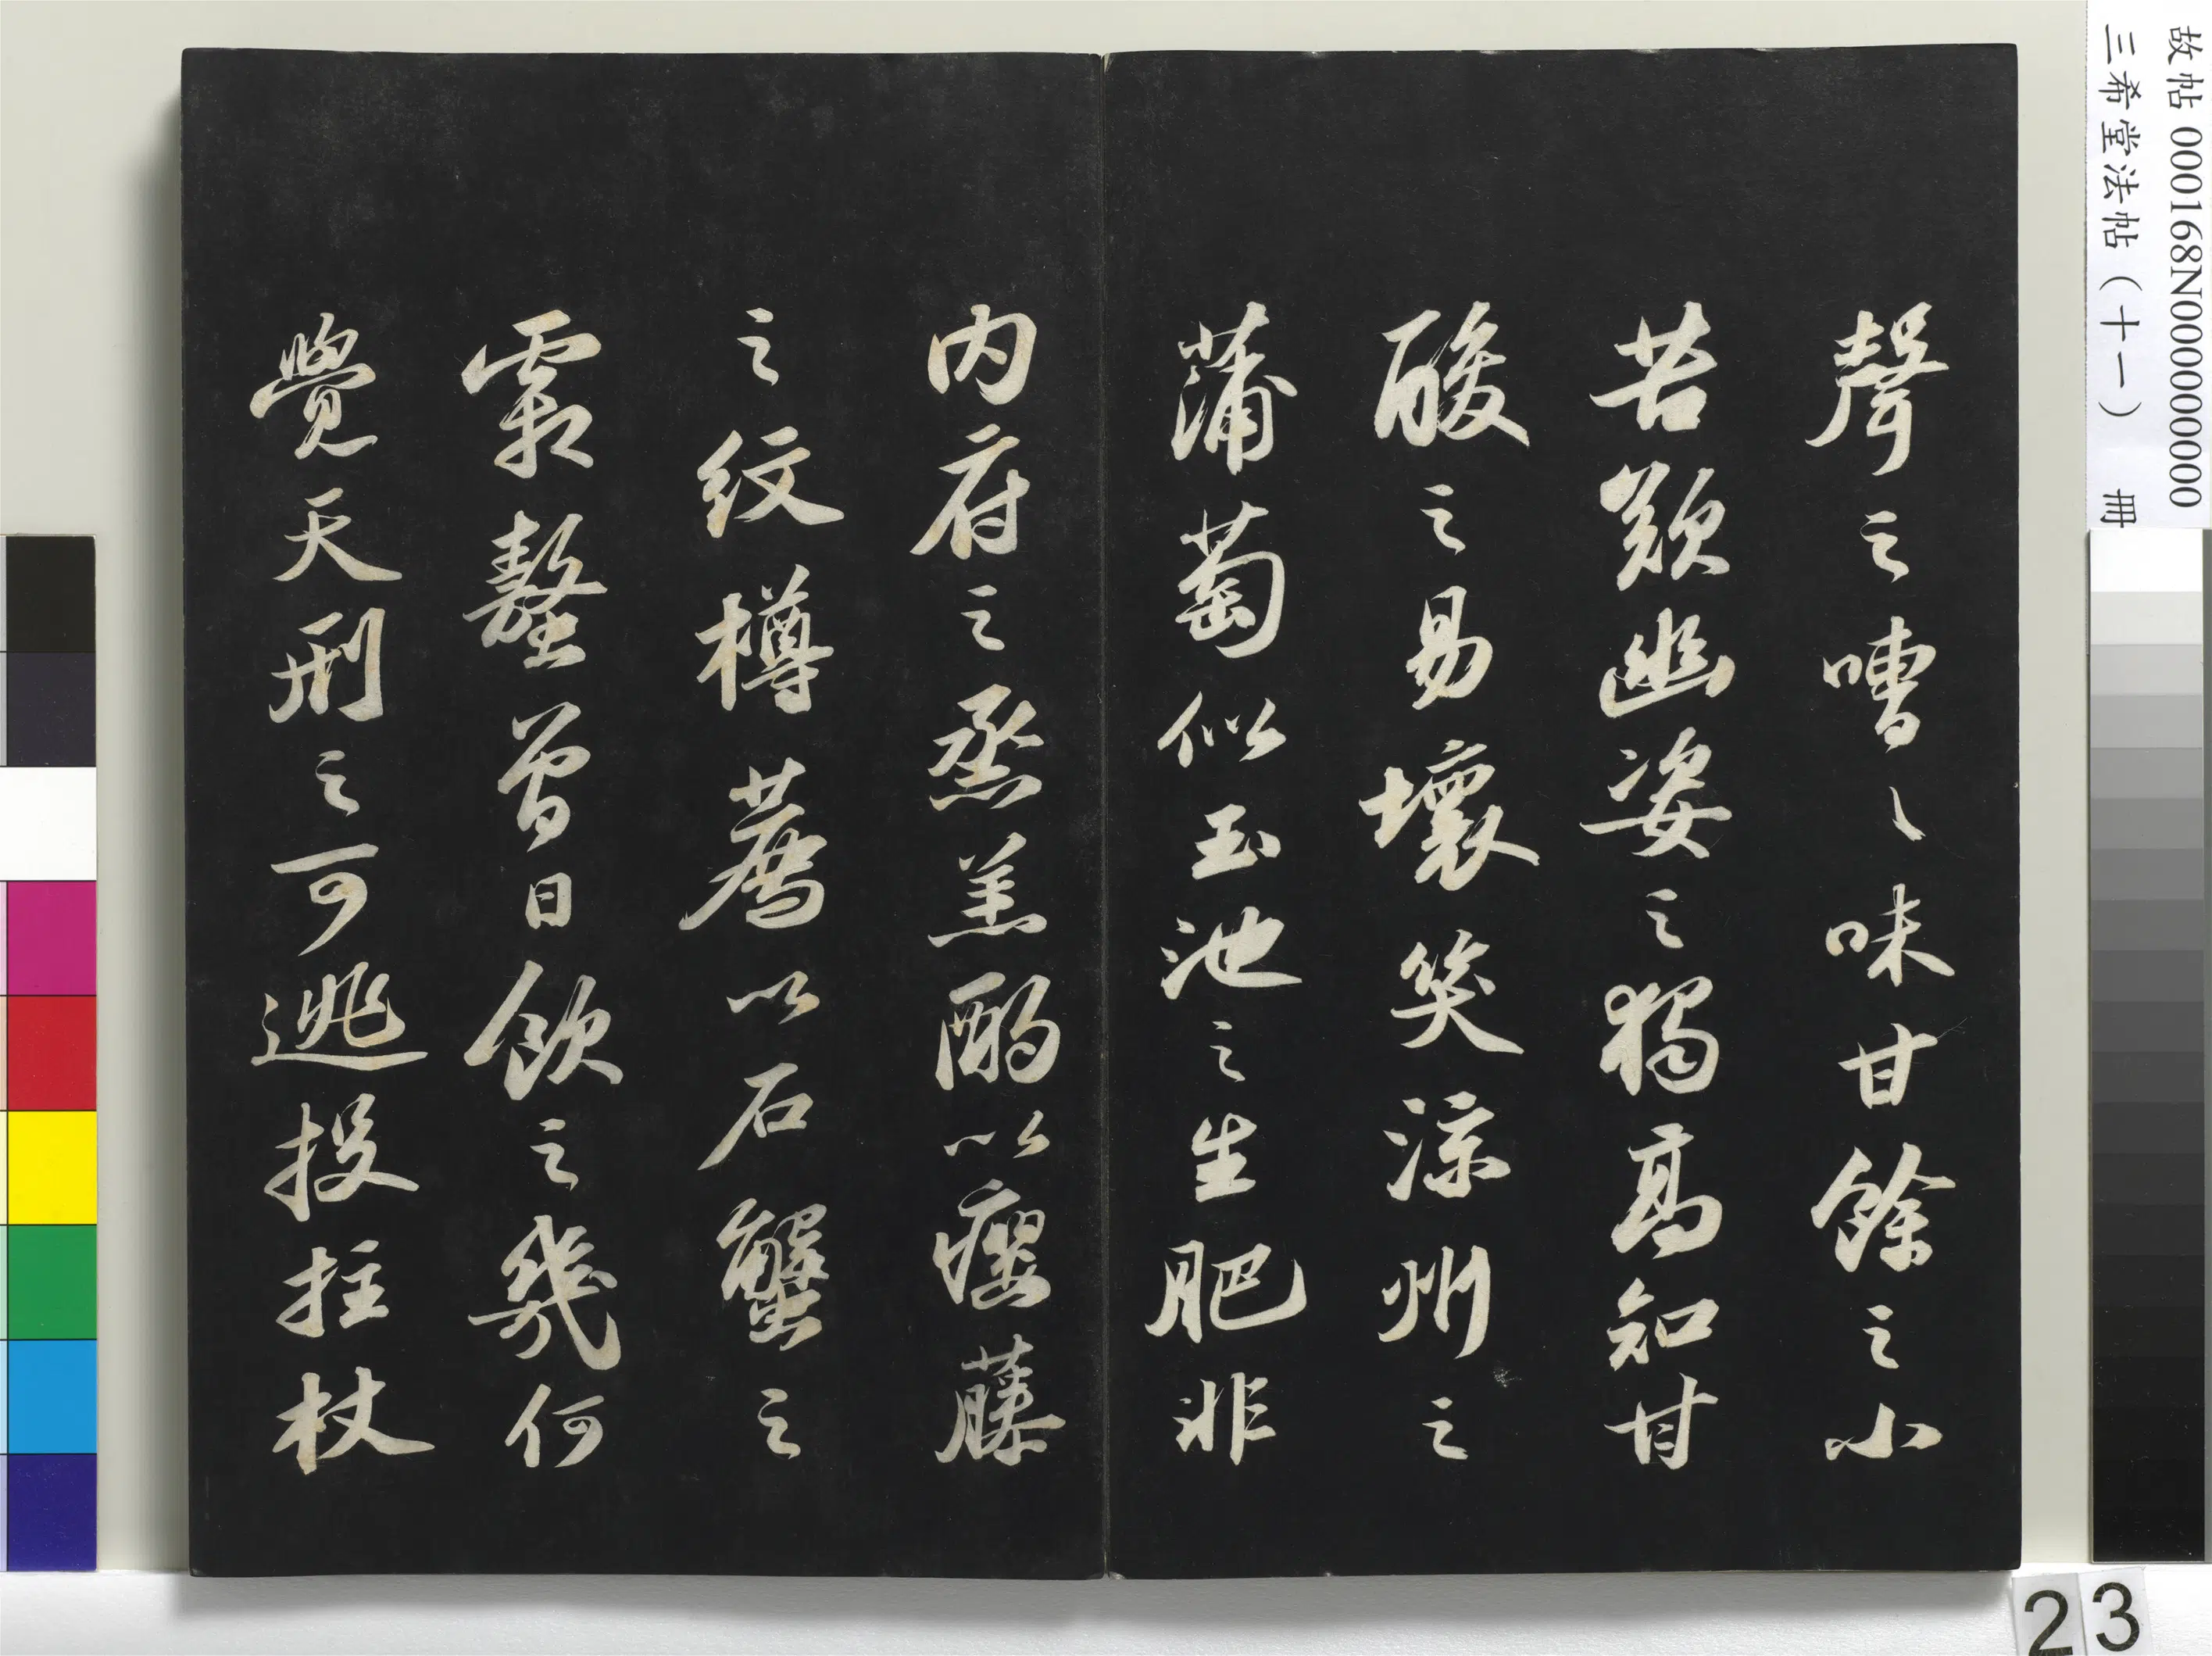 故帖 000168N000000000
三希堂法帖（十一） 冊
聲之嘈〻味甘餘之小
苦歎幽姿之獨高知甘
酸之易壞笑涼州之
蒲萄似玉池之生肥非
内府之烝羔酌以癭藤
之紋樽薦以石蟹之
霜螯曾日飲之幾何
覺天刑之可逃投拄杖
23